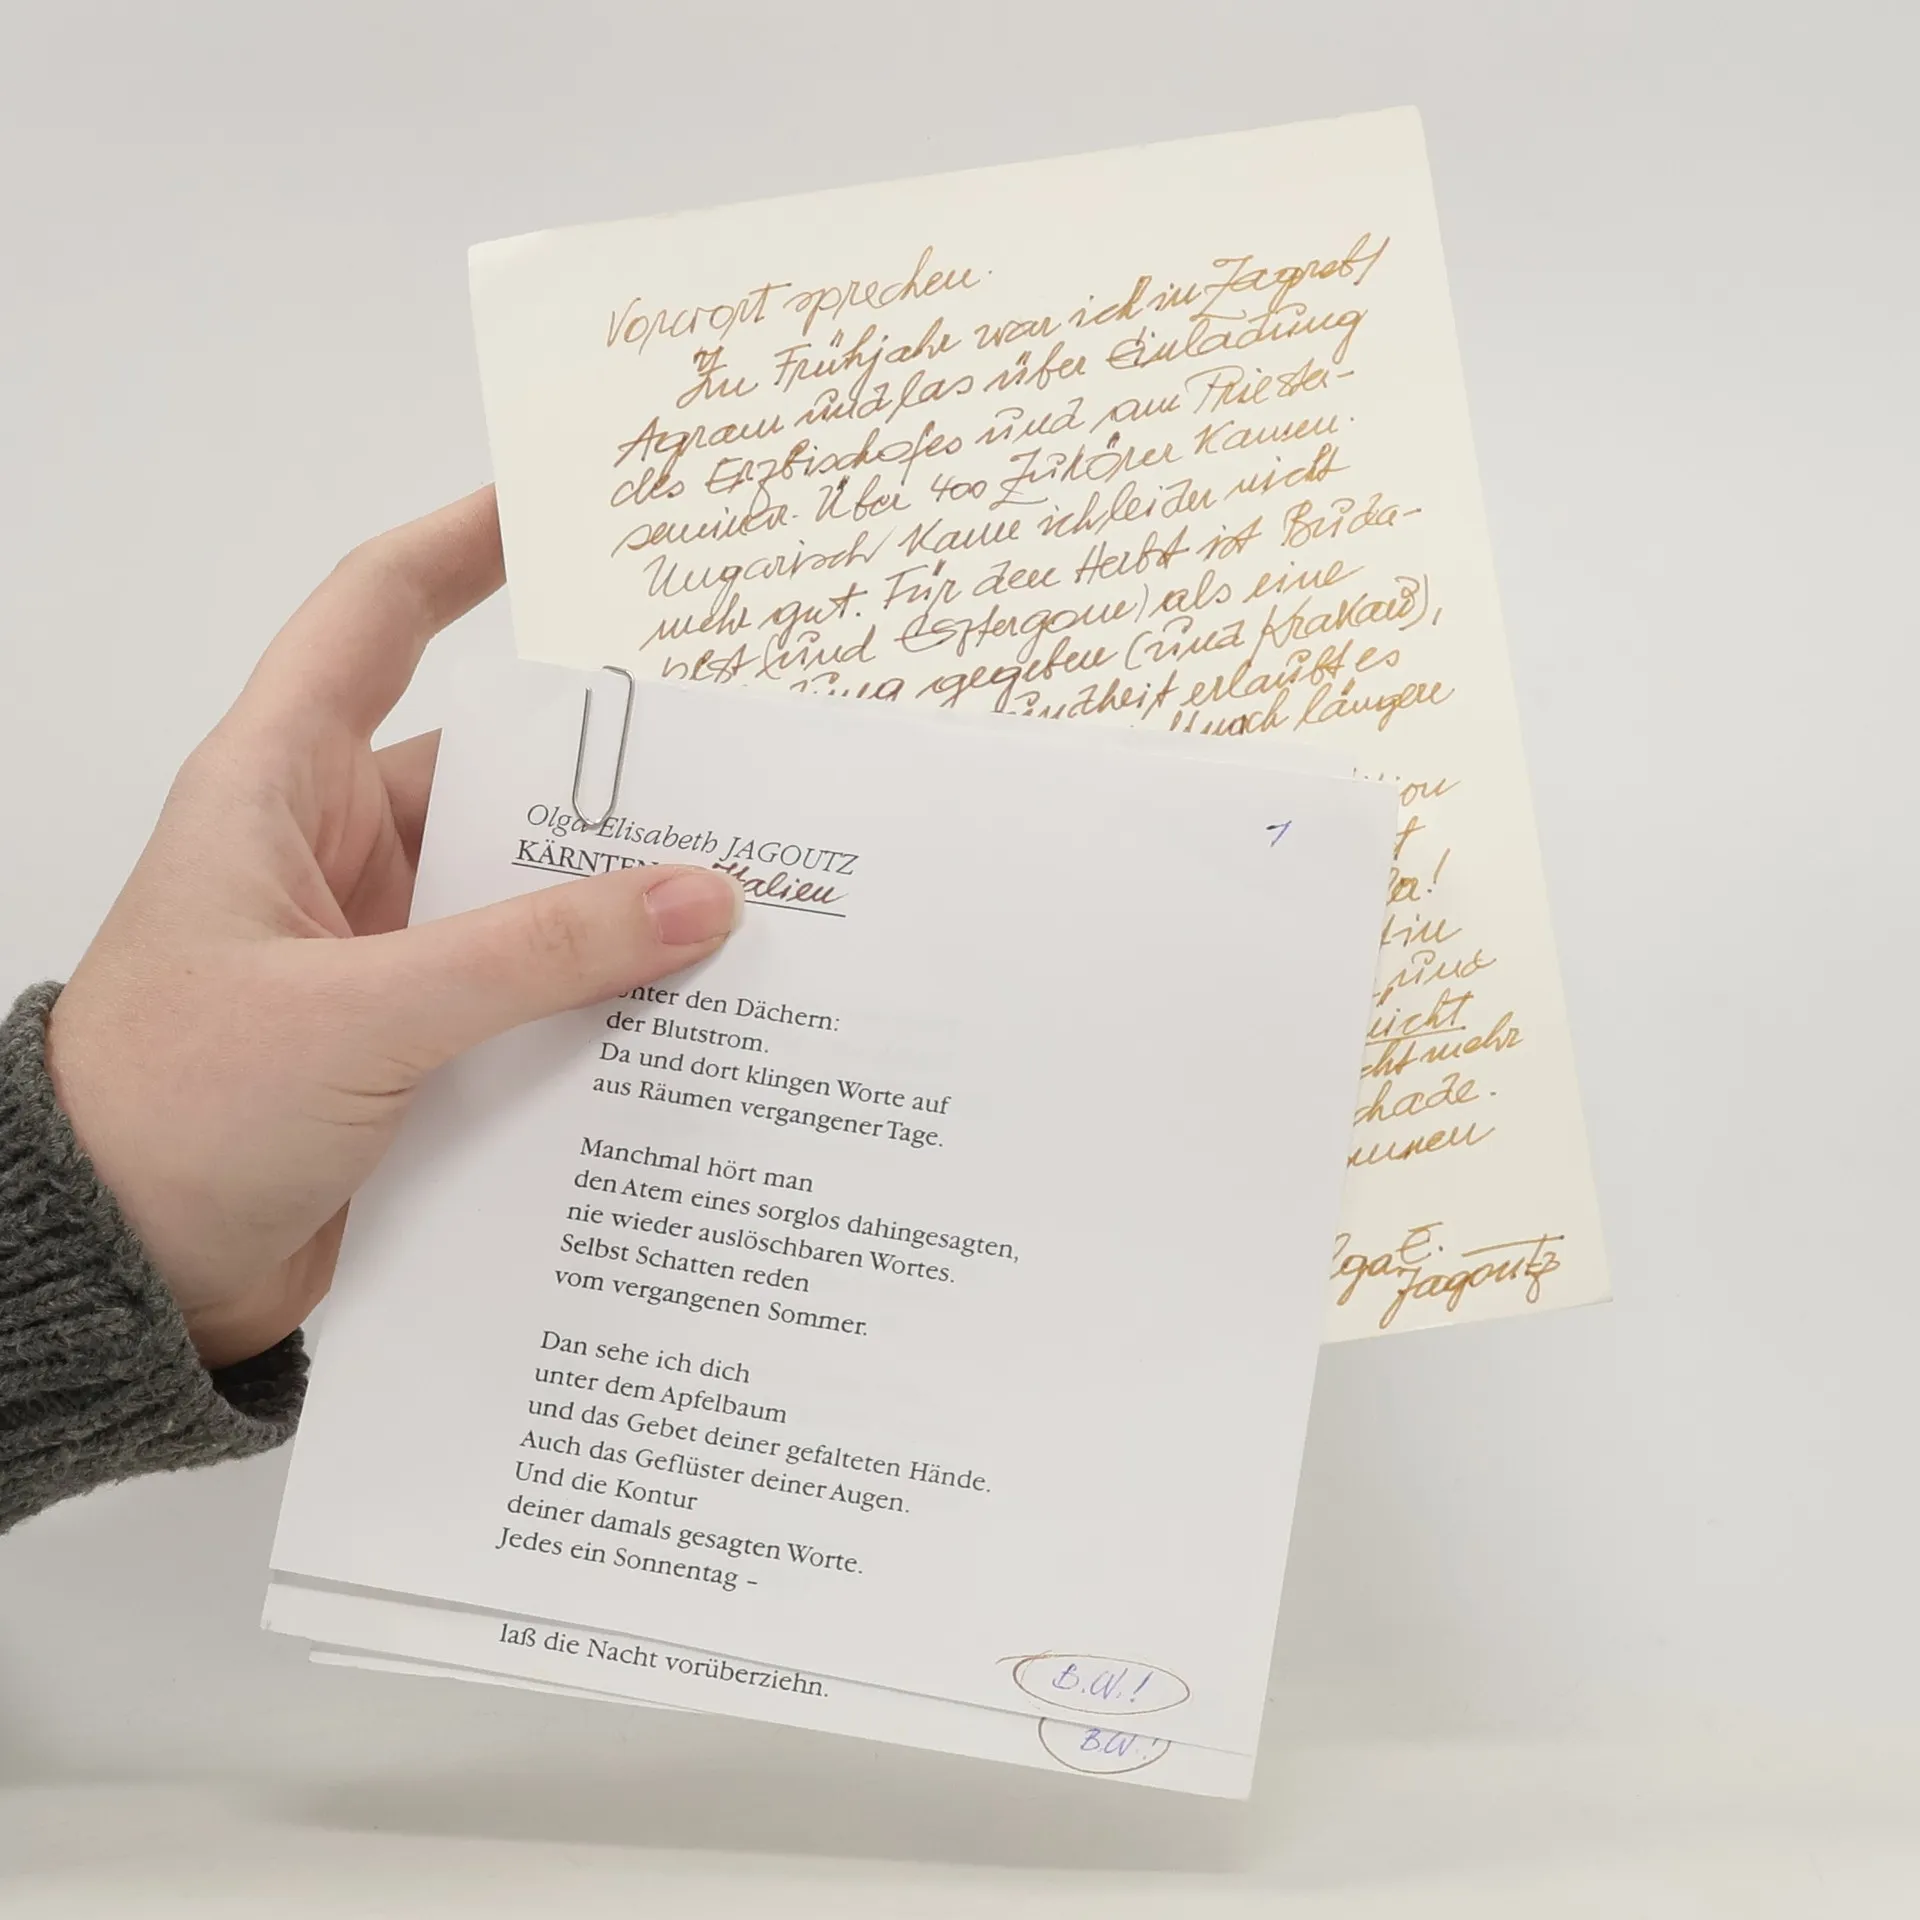 Vorwort sprechen.
Im Frühjahr war ich in Zagreb/
Agram und las über Einladung
des Erzbischofes und am Priester-
seminar. Über 400 Zuhörer kamen.
Ungarisch kann ich leider nicht
mehr gut. Für den Herbst ist Buda-
pest (und Esztergom) als eine
gegeben (und Krakau),
erlaubt es
noch längere
Olga Elisabeth JAGOUTZ
KÄRNTEN Italien
1
Unter den Dächern:
der Blutstrom.
Da und dort klingen Worte auf
aus Räumen vergangener Tage.
Manchmal hört man
den Atem eines sorglos dahingesagten,
nie wieder auslöschbaren Wortes.
Selbst Schatten reden
vom vergangenen Sommer.
Dan sehe ich dich
unter dem Apfelbaum
und das Gebet deiner gefalteten Hände.
Auch das Geflüster deiner Augen.
Und die Kontur
deiner damals gesagten Worte.
Jedes ein Sonnentag –
B.W.!
laß die Nacht vorüberziehn.
B.W.!
in
und
nicht
mehr
E.
Jagoutz